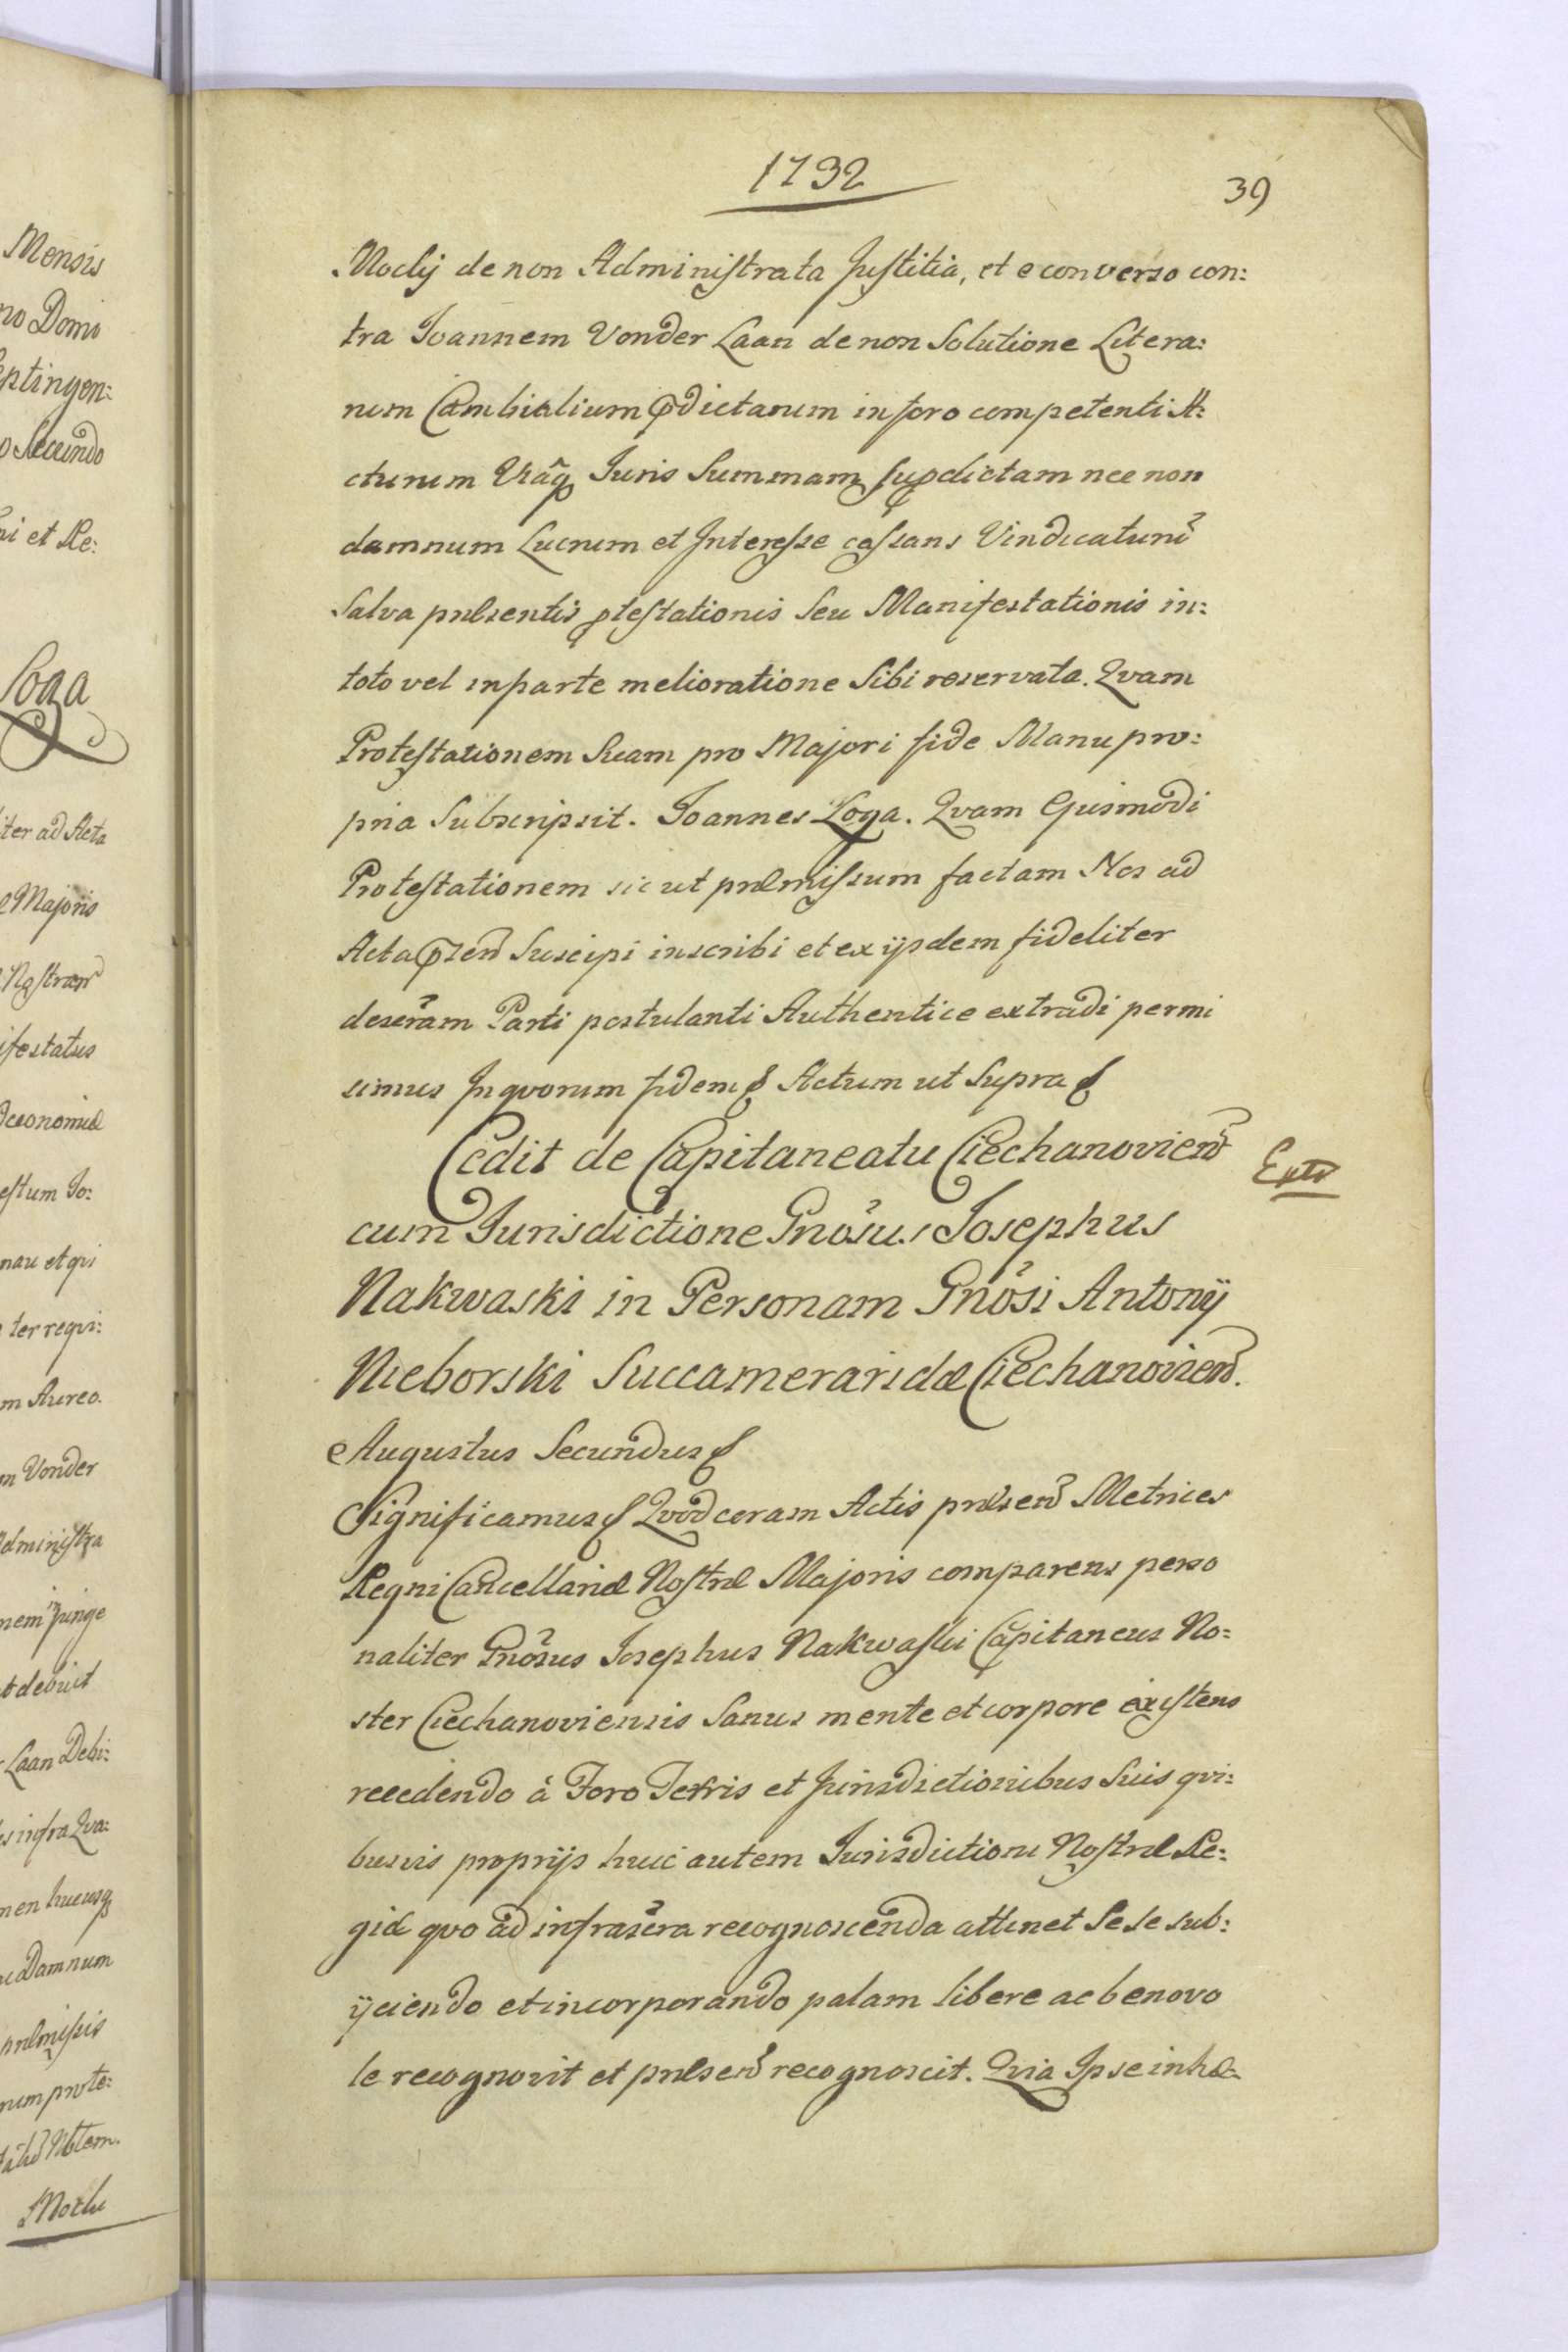 Mensis
no Domi
eptingen:
o Secundo
ni et Re:
Loga
iter ad Acta
e Majoris
Nostram
ifestatus
Oeconomiæ
estum Jo:
nau et qvi
ter reqvi:
m Aureo.
m Vonder
dministra
nem junge
t debuit
r Laan Debi:
s infra Qva:
men hucusq
ac Damnum
præmissis
rum prote:
Nbtem.
Moclu
1732
39
Moclij de non Administrata Justitia, et e converso con:
tra Joannem Vonder Laan de non Solutione Litera:
rum Cambialium pdictarum in foro competenti A:
cturum Viaq Juris Summam supdictam nec non
damnum Lucrum et Interesse cessans Vindicatur̃
Salva præsentis ptestationis Seu Manifestationis in:
toto vel in parte melioratione Sibi reservata. Qvam
Protestationem Suam pro Majori fide Manu pro:
pria Subscripsit. Joannes Loga. Qvam Ejusmodi
Protestationem sic ut præmissum factam Nos ad
Acta pseñ Suscipi inscribi et ex ijsdem fideliter
deser̃am Parti postulanti Authentice extradi permi
simus In qvorum fidem &c Actum ut Supra &c
Cedit de Capitaneatu Ciechanovieñ
Extr
cum Jurisdictione Gnosus Josephus
Nakwaski in Personam Gnosi Antonij
Nieborski Succameraridæ Ciechanovieñ.
Augustus Secundus &c
Significamus &c Qvod coram Actis præseñ Metrices
Regni Cancellariæ Nostræ Majoris comparens perso
naliter Gnosus Josephus Nakwaski Capitaneus No:
ster Ciechanoviensis Sanus mente et corpore existens
recedendo à Foro Terris et Jurisdictionibus Suis qvi:
busvis proprijs huic autem Jurisdictioni Nostræ Re:
giæ qvo ad infrascr̃a recognoscenda attinet Sese sub:
ijciendo et incorporando palam libere ac benevo
le recognovit et præseñ recognoscit. Qvia Ipse inhæ: